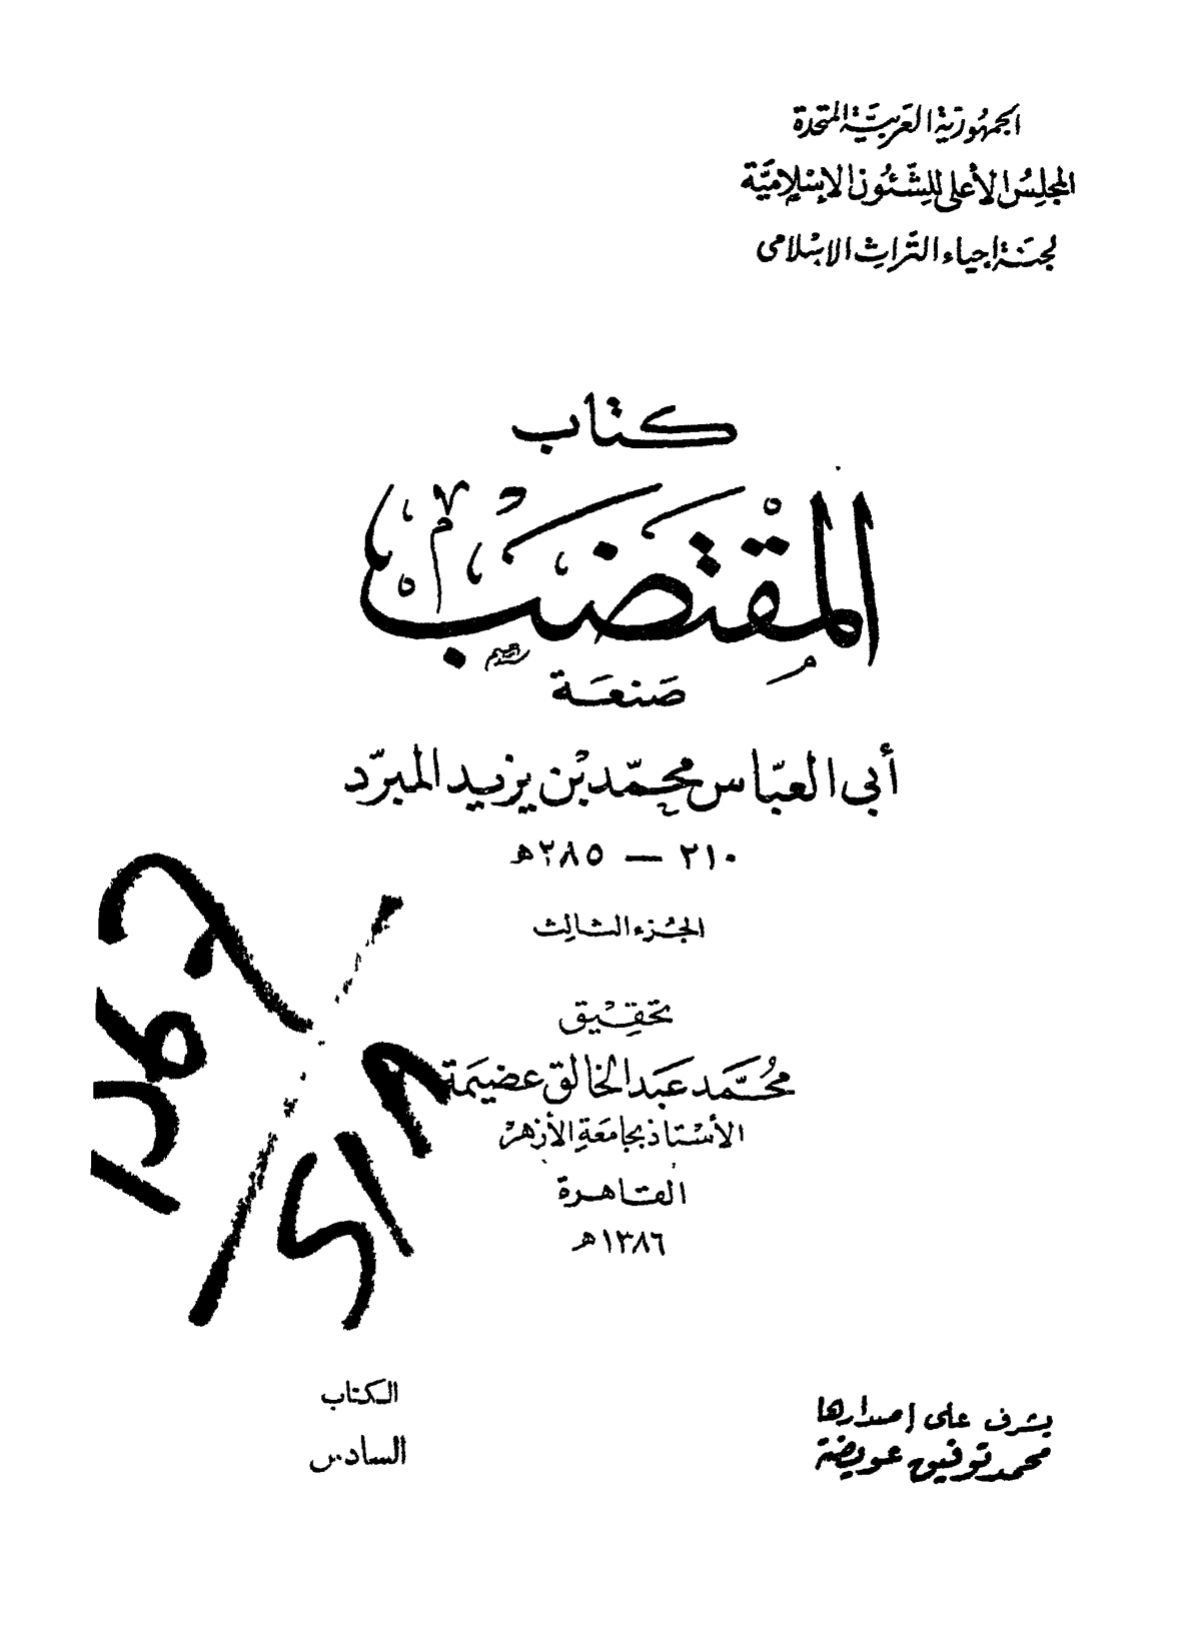 الجمهورية العربية المتحدة
المجلس الأعلى للشئون الإسلامية
لجنة إحياء التراث الإسلامى
كتاب
المقتضب
صنعة
أبى العباس محمد بن يزيد المبرد
٢١٠ — ٢٨٥ هـ
الجزء الثالث
تحقيق
محمد عبد الخالق عضيمة
الأستاذ بجامعة الأزهر
القاهرة
١٣٨٦ هـ
يشرف على إصدارها
محمد توفيق عويضة
الكتاب
السادس